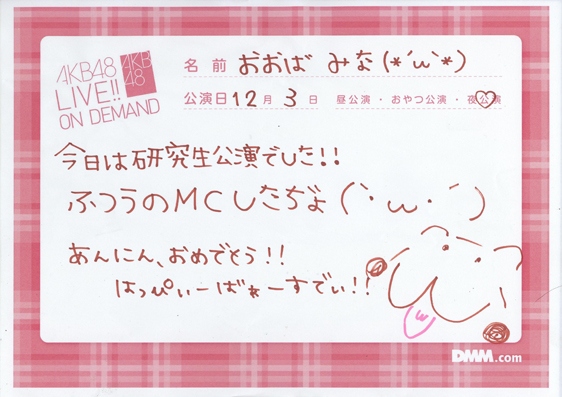 AKB48
LIVE!!
ON DEMAND
AKB
48
名前 おおば みな(*´ω`*)
公演日 12月 3日 昼公演・おやつ公演・夜公演
今日は研究生公演でした!!
ふつうのMCしたぢょ(`・ω・´)
あんにん、おめでとう!!
はっぴぃーばぁーすでい!!
DMM.com